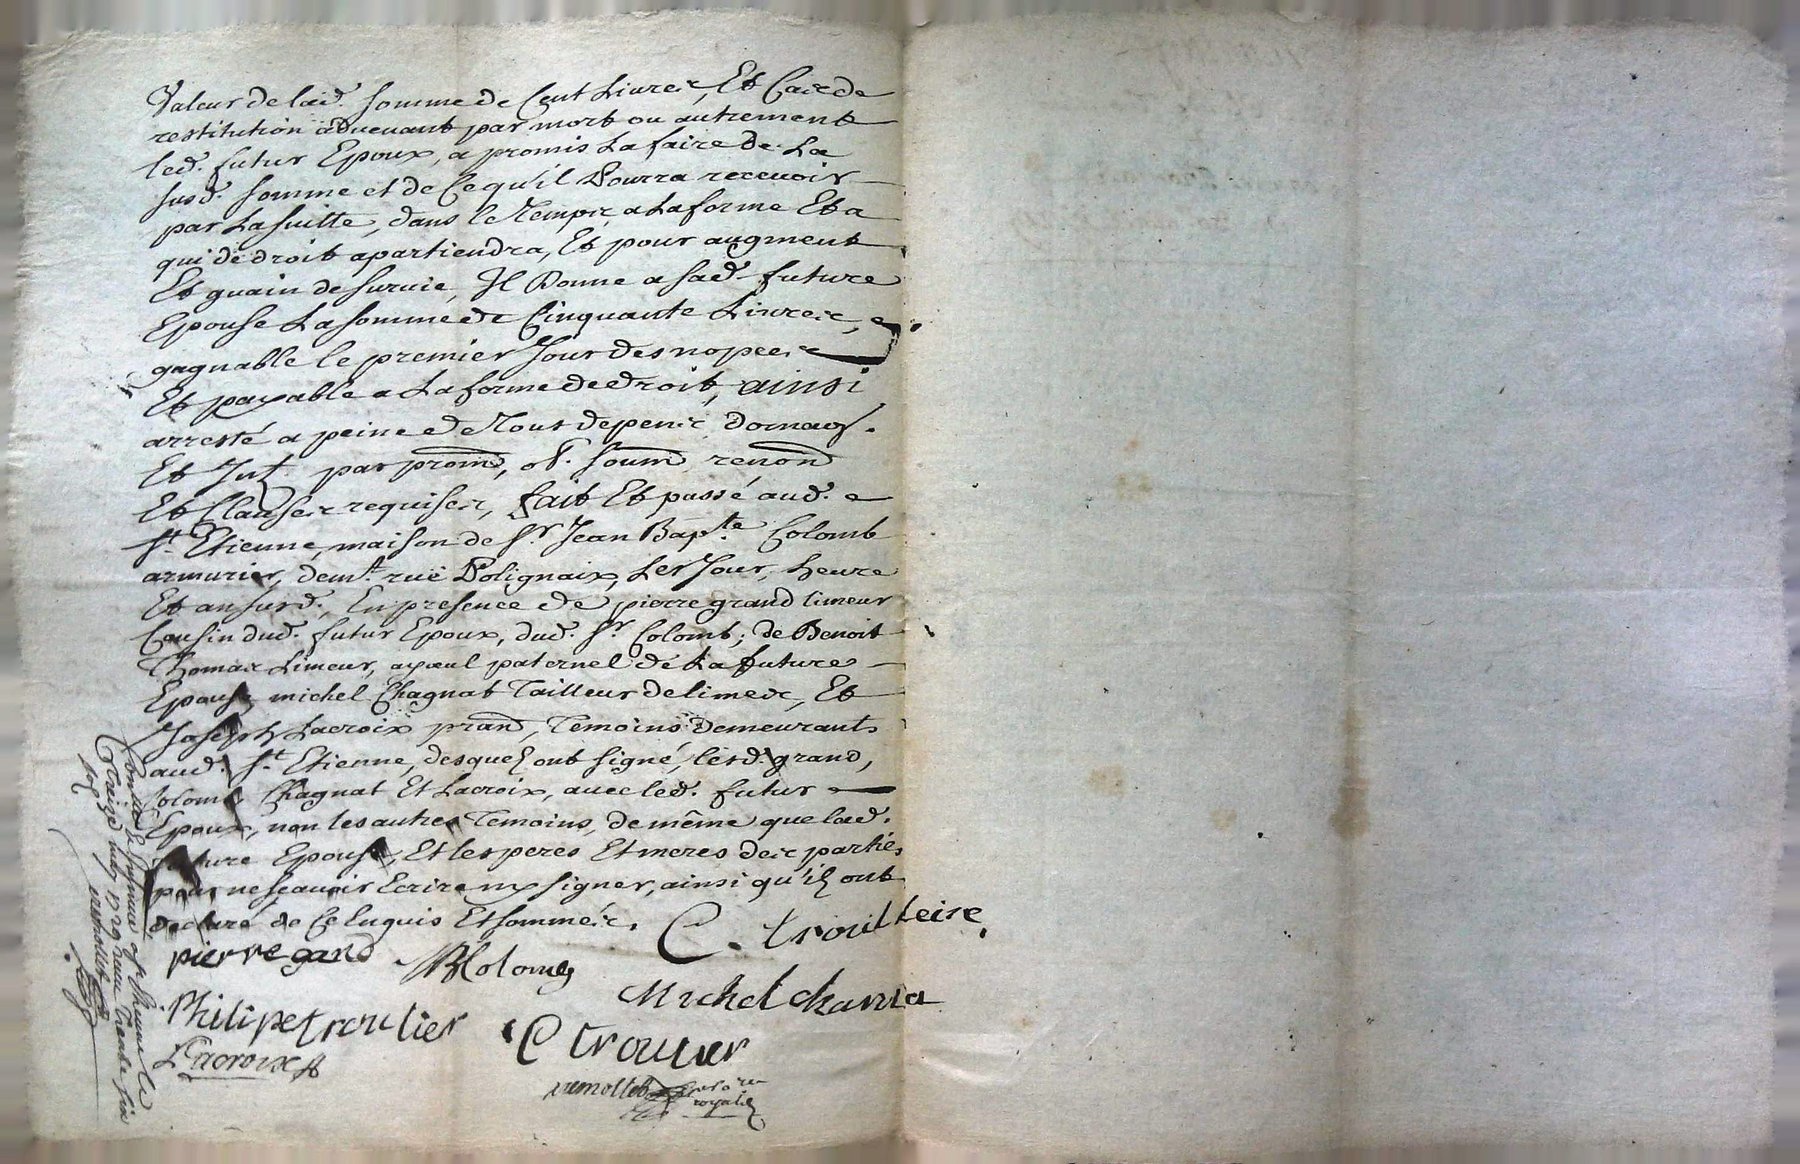 Valeur de lad. somme de Cent Livres, Et Cas de
restitution advenant par mort ou autrement
led. futur Epoux, a promis La faire de La
susd. somme et de Ce qu'il Pourra recevoir
par La suitte, dans le Temps, a La forme Et a
qui de droit apartiendra, Et pour augment
Et guain de survie, Il Donne a sad. future
Epouse La somme de Cinquante Livres,
gagnable le premier Jour des nopces
Et payable a La forme de droit, ainsi
arresté a peine de Tous depens domag.
Et Int. par prom, ob. soum renon
Et Clauses requises, fait Et passé aud.
St. Etienne, maison de Sr. Jean Bapte. Colomb
armurier, demt. ruë Polignaix, Les Jour, heure
Et an susd. En presence de pierre grand limeur
Cousin dud. futur Epoux, dud. Sr. Colomb; de Benoit
Thomas Limeur, ayoeul paternel de La future
Epouse, michel Chagnat Tailleur de limes, Et
Joseph Lacroix prand, Temoins Demeurants
aud. St. Etienne, desquels ont signé, lesd. grand,
Colomb, Chagnat Et Lacroix, avec led. futur
Epoux, non les autres Temoins, de même que lad.
future Epouse, Et les peres Et meres des parties
pour ne scavoir Ecrire ny signer, ainsi qu'ils ont
declaré de Ce Enquis Et sommés.
C. trouilleire
pierre gand
JB Colomb
Michel chania
Philipe troulier
C trouiler
Lacroix